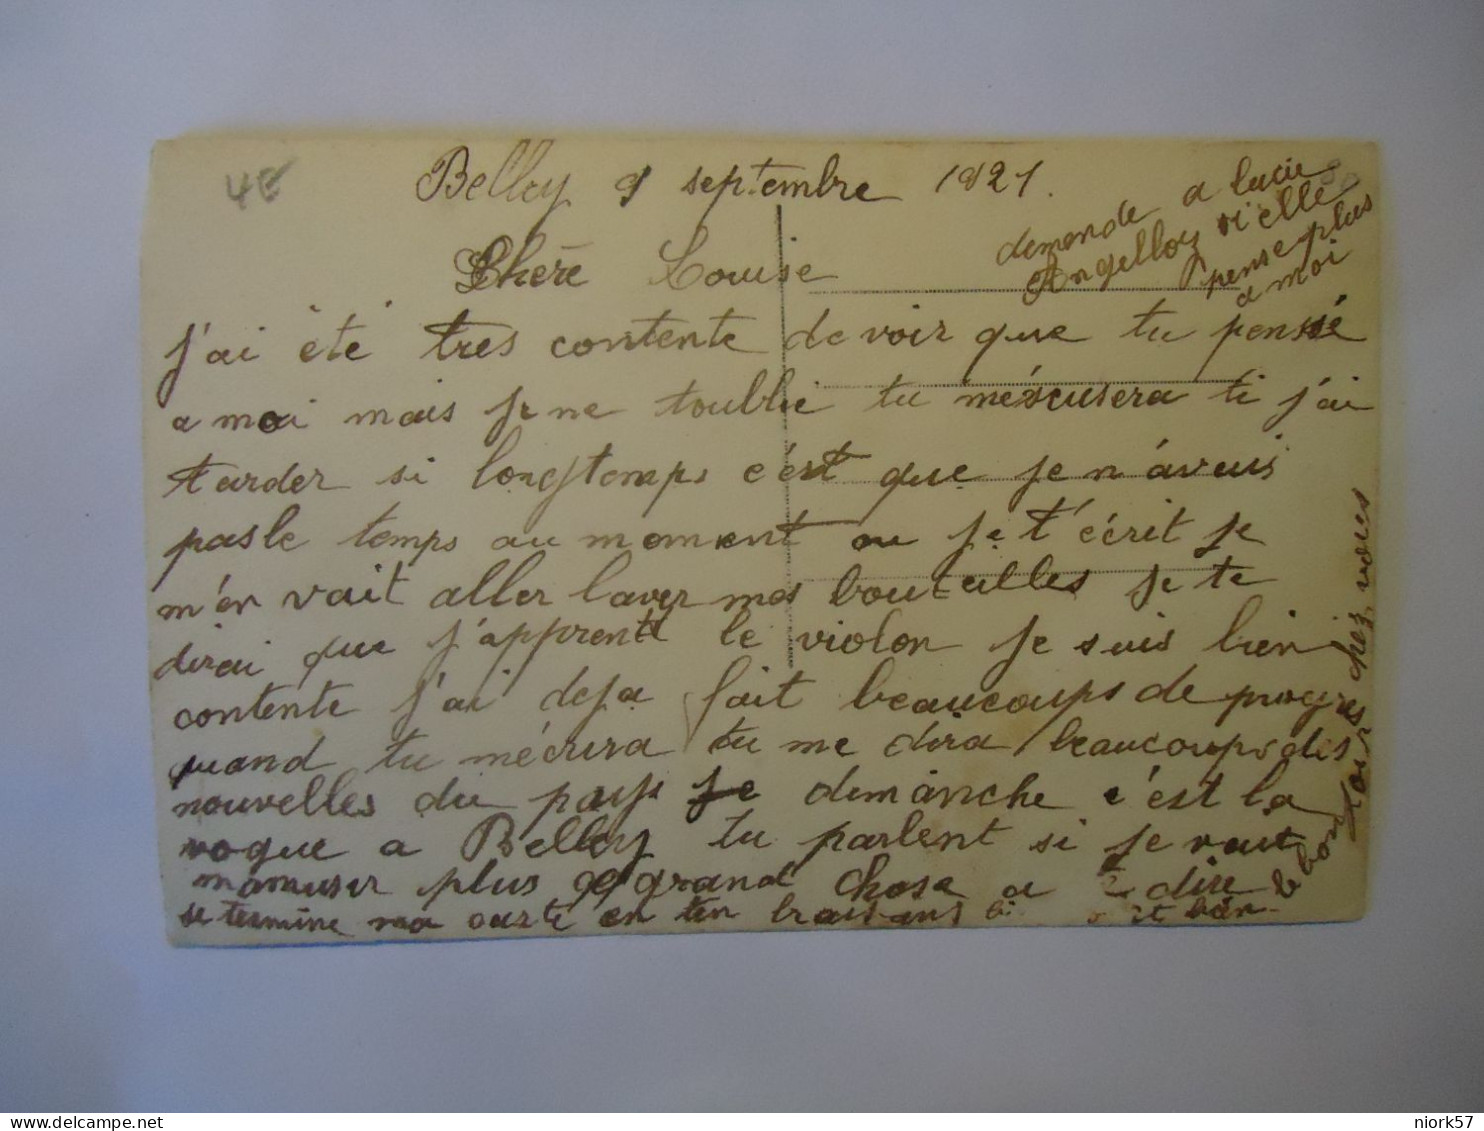 4€
Belley 9 septembre 1921.
demande a lucie
Angelloy si elle
pense plus
a moi
Chère Louise
J'ai été tres contente de voir que tu pense
a moi mais je ne toublie tu méscusera ti j'ai
tarder si longtemps c'est que je n'avais
pas le temps au moment ou je t'écrit je
m'en vait aller laver mes bouteilles je te
dirai que j'apprent le violon je suis bien
contente j'ai deja fait beaucoups de progres
quand tu mécrira tu me dira beaucoups des
nouvelles du pays dimanche c'est la
vogue a Belley tu parlent si je vait
mamuser plus grand chose a dire
je termine ma carte en ten brais-ans bien
le bonsoir chez vous
delcampe.net
niork57